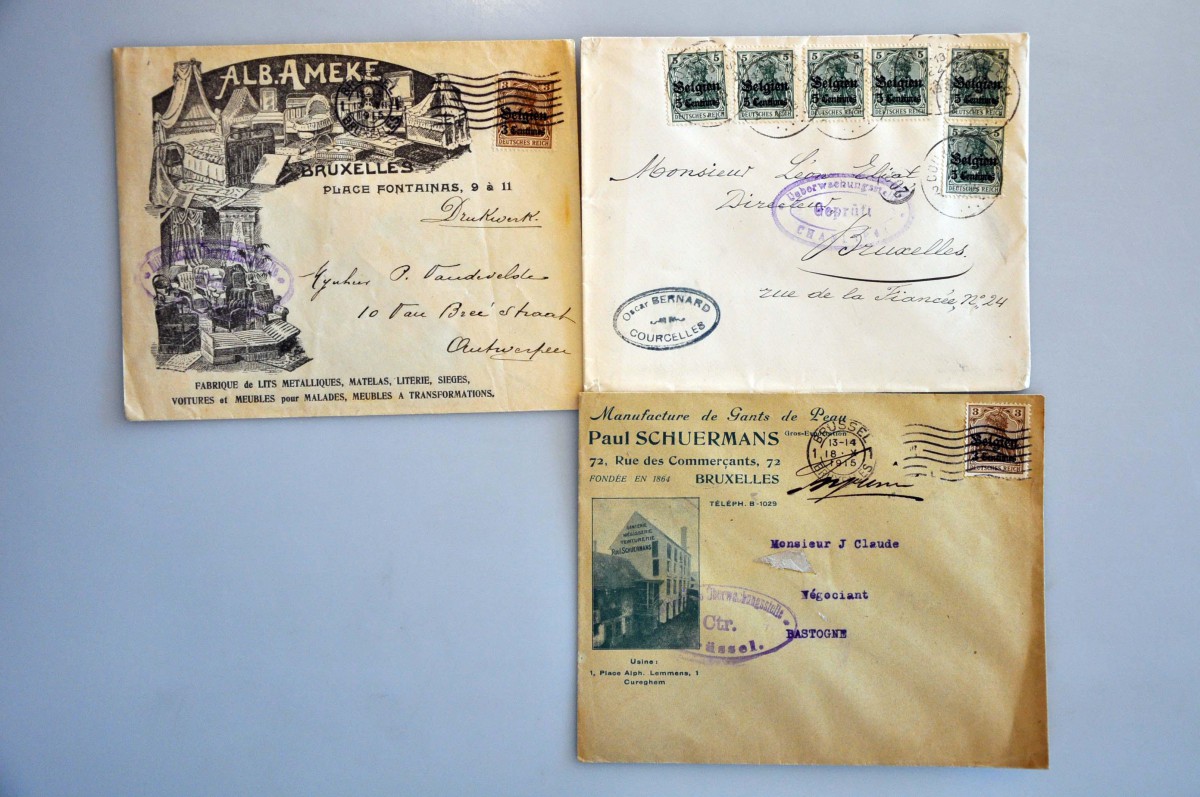 ALB. AMEKE
BRUXELLES
PLACE FONTAINAS, 9 à 11
Drukwerk.
3
3
Belgien
3 Centimes
DEUTSCHES REICH
Mynheer P. Vandevelde
10 Van Bree straat
Antwerpen
FABRIQUE de LITS METALLIQUES, MATELAS, LITERIE, SIEGES,
VOITURES et MEUBLES pour MALADES, MEUBLES A TRANSFORMATIONS.
5 5 5 5 5 5 5 5 5 5
Belgien Belgien Belgien Belgien Belgien
5 Centimes 5 Centimes 5 Centimes 5 Centimes 5 Centimes
DEUTSCHES REICH DEUTSCHES REICH DEUTSCHES REICH DEUTSCHES REICH DEUTSCHES REICH
5 5
Belgien
5 Centimes
DEUTSCHES REICH
Monsieur Léon Eliat
Directeur
Geprüft
Bruxelles.
rue de la Fiancée, No 24
Oscar BERNARD
COURCELLES
Manufacture de Gants de Peau
Paul SCHUERMANS Gros-Exportation
72, Rue des Commerçants, 72
FONDÉE EN 1864 BRUXELLES
TÉLÉPH. B-1029
BRUSSEL
13-14
1 18-X
1915
BRUXELLES
3 3
Belgien
3 Centimes
DEUTSCHES REICH
GANTERIE
MÉGISSERIE
TEINTURERIE
Paul SCHUERMANS
Monsieur J Claude
Négociant
BASTOGNE
Überwachungsstelle
Ctr.
Usine :
1, Place Alph. Lemmens, 1
Cureghem